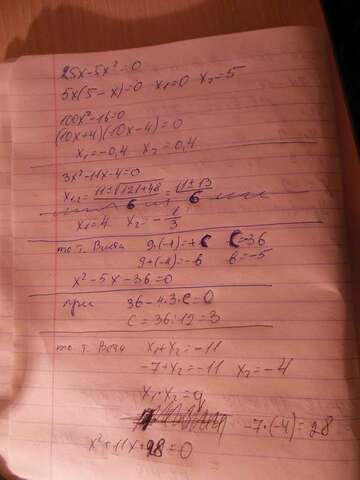 25x-5x²=0
5x(5-x)=0 x₁=0 x₂=5
100x²-16=0
(10x+4)(10x-4)=0
x₁=-0,4 x₂=0,4
3x²-11x-4=0
x₁,₂=11±√121+48/6=11±13/6
x₁=4 x₂=-1/3
по т. Виета 9·(-4)=+C C=36
9+(-4)=-b b=-5
x²-5x-36=0
при 36-4·3·C=0
C=36:12=3
по т. Виета x₁+x₂=-11
-7+x₂=-11 x₂=-4
x₁·x₂=q
-7·(-4)=28
x²+11x+28=0